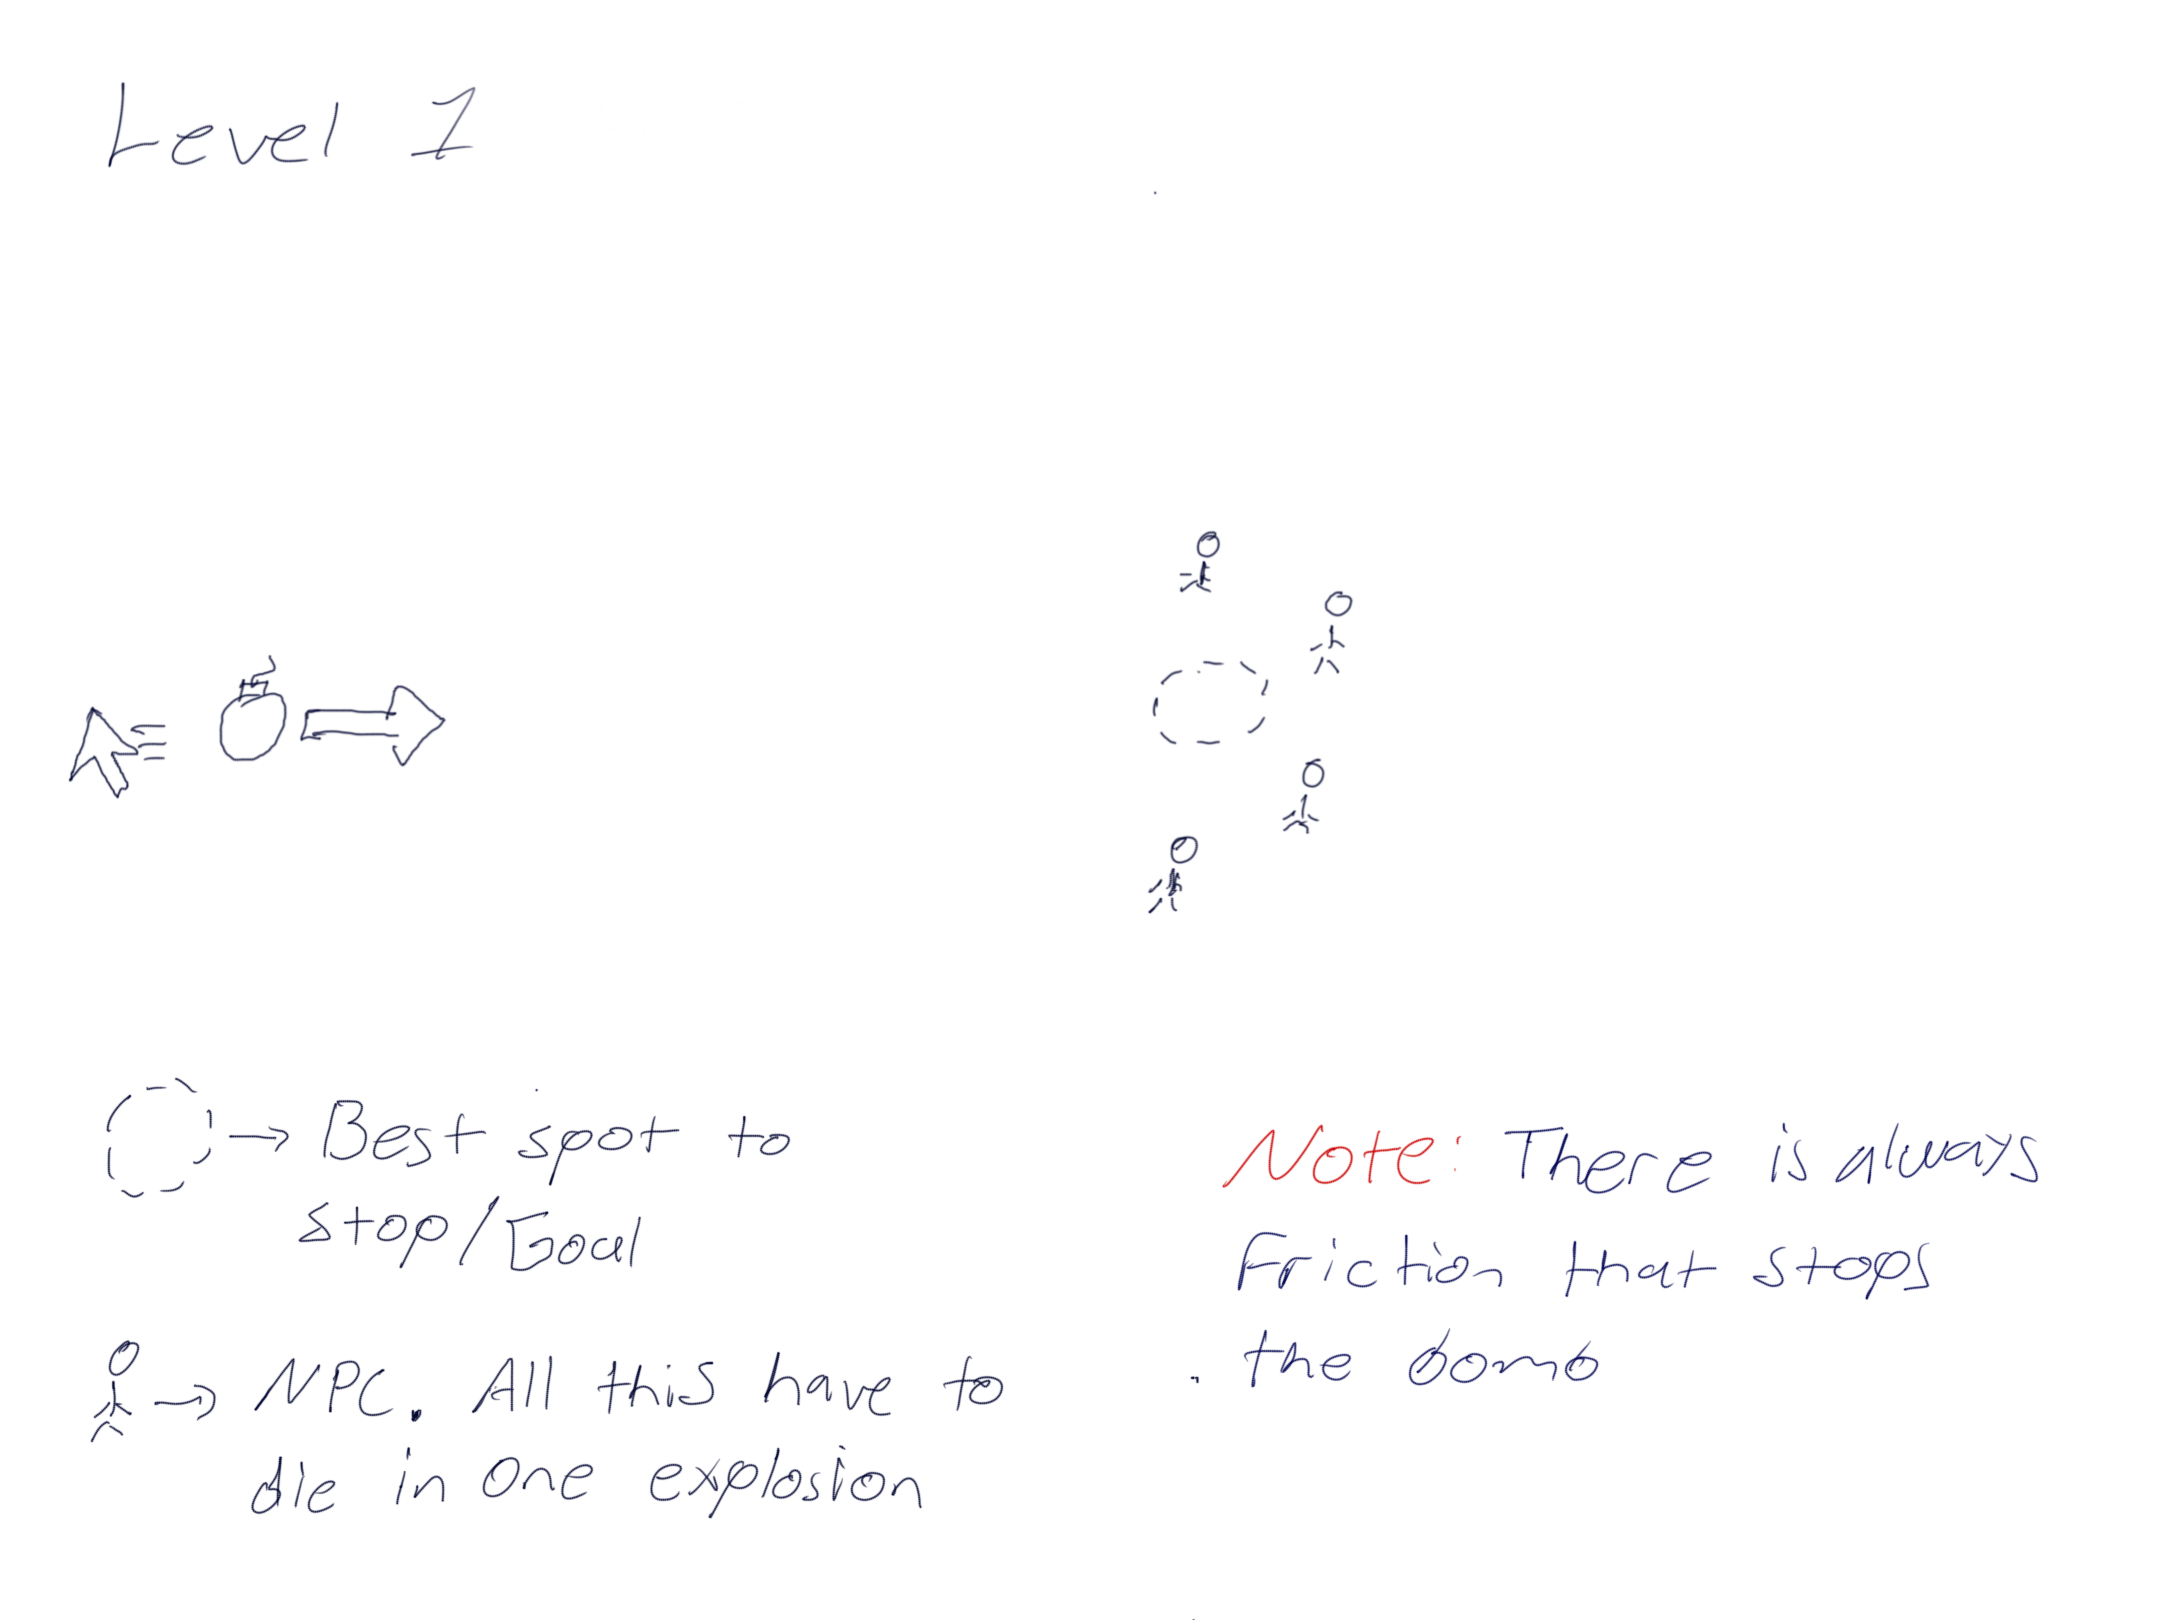 Level 1
Best spot to
stop/Goal
NPC. All this have to
die in one explosion
Note: There is always
Friction that stops
the bomb